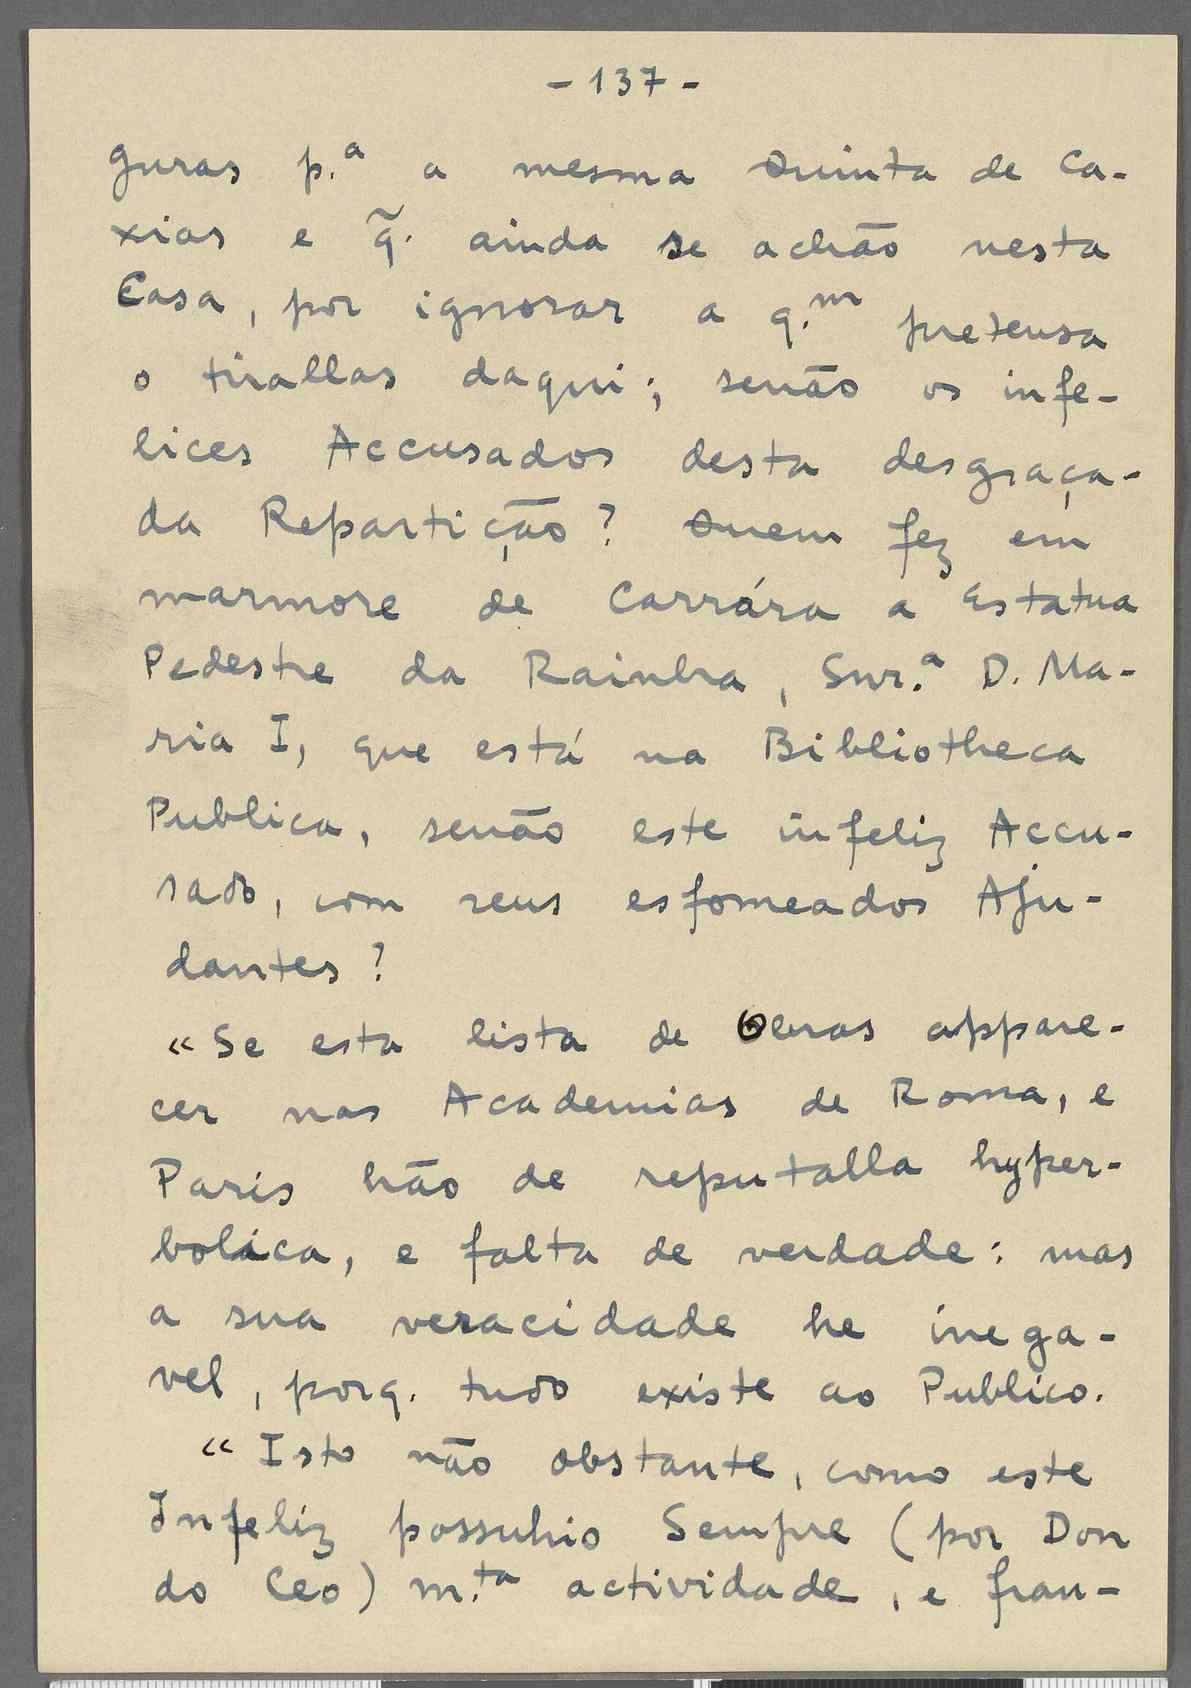 - 137 -
guras p.ª a mesma Quinta de Ca-
xias e q̃. ainda se achão nesta
Casa, por ignorar a q.m pretensa
o tirallas daqui; senão os infe-
lices Accusados desta desgraça-
da Repartição? Quem fez em
marmore de Carrára a Estatua
Pedestre da Rainha, Snr.ª D. Ma-
ria I, que está na Bibliotheca
Publica, senão este infeliz Accu-
sado, com seus esfomeados Aju-
dantes?
«Se esta lista de Obras appare-
cer nas Academias de Roma, e
Paris hão de reputalla hyper-
bolica, e falta de verdade: mas
a sua veracidade he inega-
vel, porq. tudo existe ao Publico.
«Isto não obstante, como este
Infeliz possuhio Sempre (por Don
do Ceo) m.ta actividade, e fran-